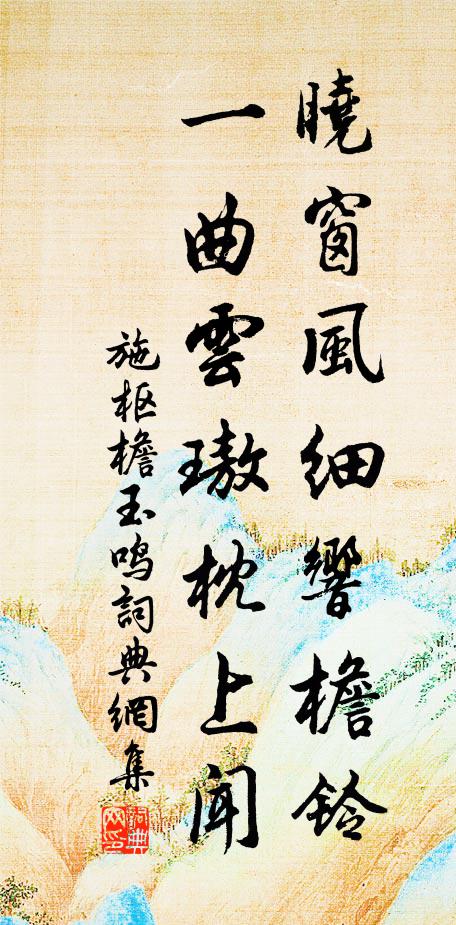 曉窗風細響檐鈴
一曲雲璈枕上聞
施枢檐玉鸣詞典網集
詞典